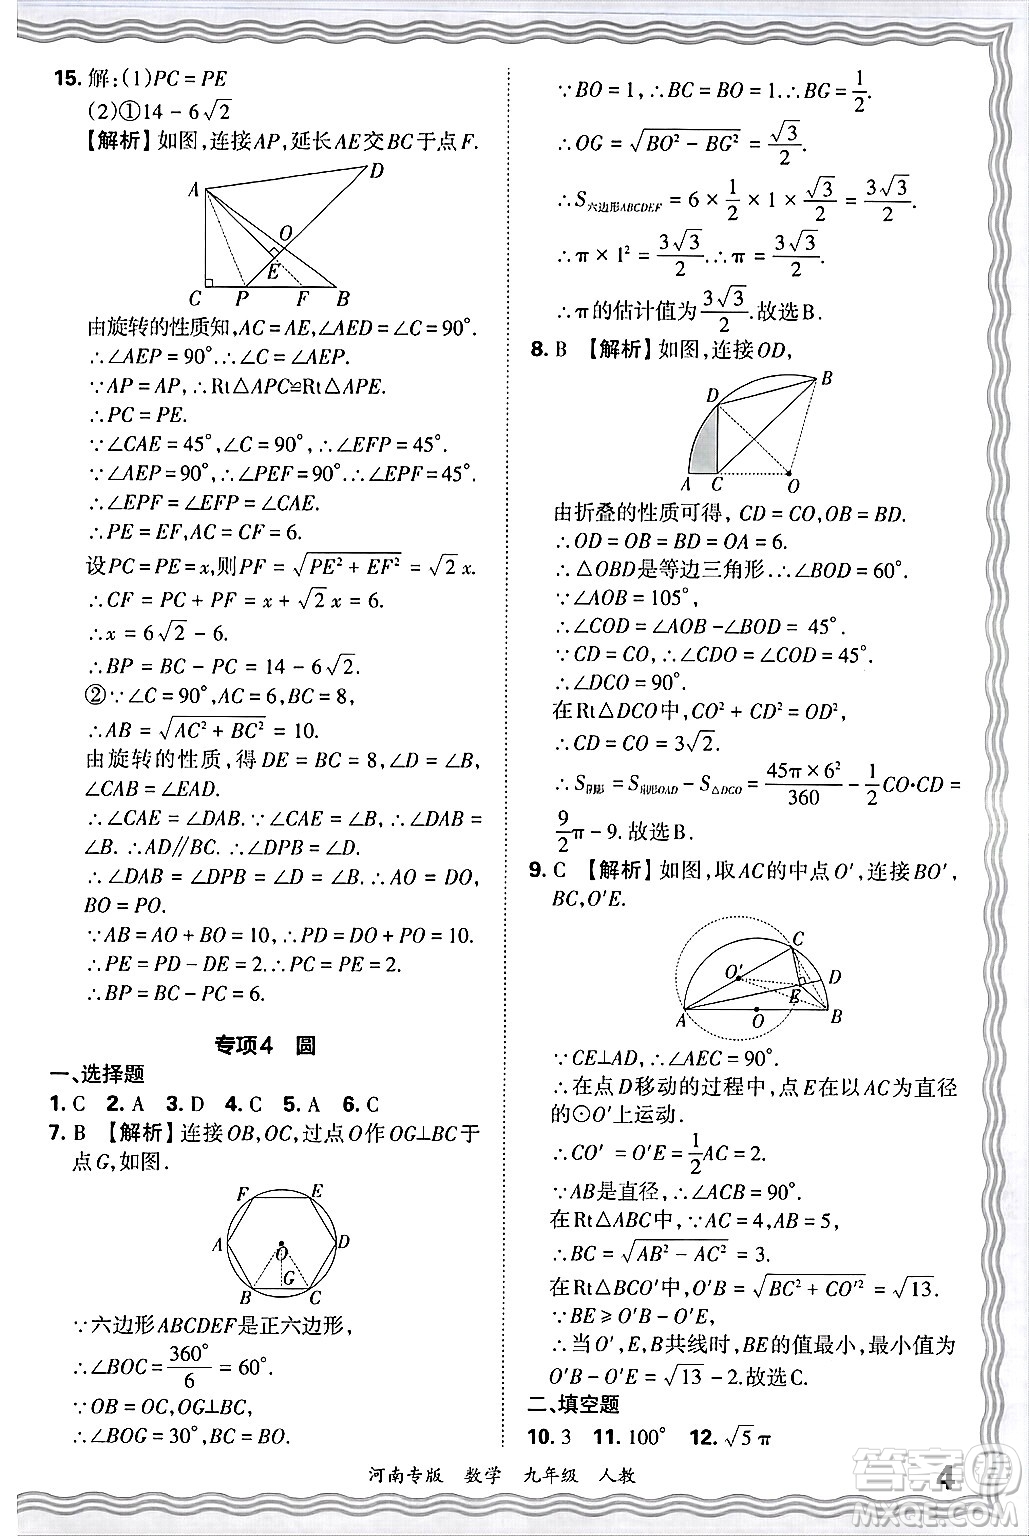 15. 解:(1)PC = PE
(2)①14 - 6√2
【解析】如图,连接AP,延长AE交BC于点F.
A
D
O
E
C
P
F
B
由旋转的性质知,AC = AE,∠AED = ∠C = 90°.
∴∠AEP = 90°.∴∠C = ∠AEP.
∵AP = AP,∴Rt△APC≌Rt△APE.
∴PC = PE.
∵∠CAE = 45°,∠C = 90°,∴∠EFP = 45°.
∵∠AEP = 90°,∴∠PEF = 90°.∴∠EPF = 45°.
∴∠EPF = ∠EFP = ∠CAE.
∴PE = EF,AC = CF = 6.
设PC = PE = x,则PF = √(PE² + EF²) = √2 x.
∴CF = PC + PF = x + √2 x = 6.
∴x = 6√2 - 6.
∴BP = BC - PC = 14 - 6√2.
②∵∠C = 90°,AC = 6,BC = 8,
∴AB = √(AC² + BC²) = 10.
由旋转的性质,得DE = BC = 8,∠D = ∠B,
∠CAB = ∠EAD.
∴∠CAE = ∠DAB.∵∠CAE = ∠B,∴∠DAB =
∠B.∴AD∥BC.∴∠DPB = ∠D.
∴∠DAB = ∠DPB = ∠D = ∠B.∴AO = DO,
BO = PO.
∵AB = AO + BO = 10,∴PD = DO + PO = 10.
∴PE = PD - DE = 2.∴PC = PE = 2.
∴BP = BC - PC = 6.
专项4 圆
一、选择题
1. C 2. A 3. D 4. C 5. A 6. C
7. B 【解析】连接OB,OC,过点O作OG⊥BC于
点G,如图.
F
E
A
O
D
G
B
C
∵六边形ABCDEF是正六边形,
∴∠BOC = 360°/6 = 60°.
∵OB = OC,OG⊥BC,
∴∠BOG = 30°,BC = BO.
∵BO = 1,∴BC = BO = 1.∴BG = 1/2.
∴OG = √(BO² - BG²) = √3/2.
∴S六边形ABCDEF = 6 × 1/2 × 1 × √3/2 = 3√3/2.
∴π × 1² = 3√3/2.∴π = 3√3/2.
∴π的估计值为3√3/2.故选B.
8. B 【解析】如图,连接OD,
D
B
A
C
O
由折叠的性质可得, CD = CO,OB = BD.
∴OD = OB = BD = OA = 6.
∴△OBD是等边三角形.∴∠BOD = 60°.
∵∠AOB = 105°,
∴∠COD = ∠AOB -∠BOD = 45°.
∵CD = CO,∴∠CDO = ∠COD = 45°.
∴∠DCO = 90°.
在Rt△DCO中,CO² + CD² = OD²,
∴CD = CO = 3√2.
∴S阴影 = S扇形OAD - S△DCO = 45π × 6²/360 - 1/2 CO·CD =
9/2 π - 9.故选B.
9. C 【解析】如图,取AC的中点O′,连接BO′,
BC,O′E.
C
O′
D
E
A
O
B
∵CE⊥AD,∴∠AEC = 90°.
∴在点D移动的过程中,点E在以AC为直径
的⊙O′上运动.
∴CO′ = O′E = 1/2 AC = 2.
∵AB是直径,∴∠ACB = 90°.
在Rt△ABC中,∵AC = 4,AB = 5,
∴BC = √(AB² - AC²) = 3.
在Rt△BCO′中,O′B = √(BC² + CO′²) = √13.
∵BE ≥ O′B - O′E,
∴当O′,E,B共线时,BE的值最小,最小值为
O′B - O′E = √13 - 2.故选C.
二、填空题
10. 3 11. 100° 12. √5 π
河南专版 数学 九年级 人教
4
作业精灵
MXQE.COM